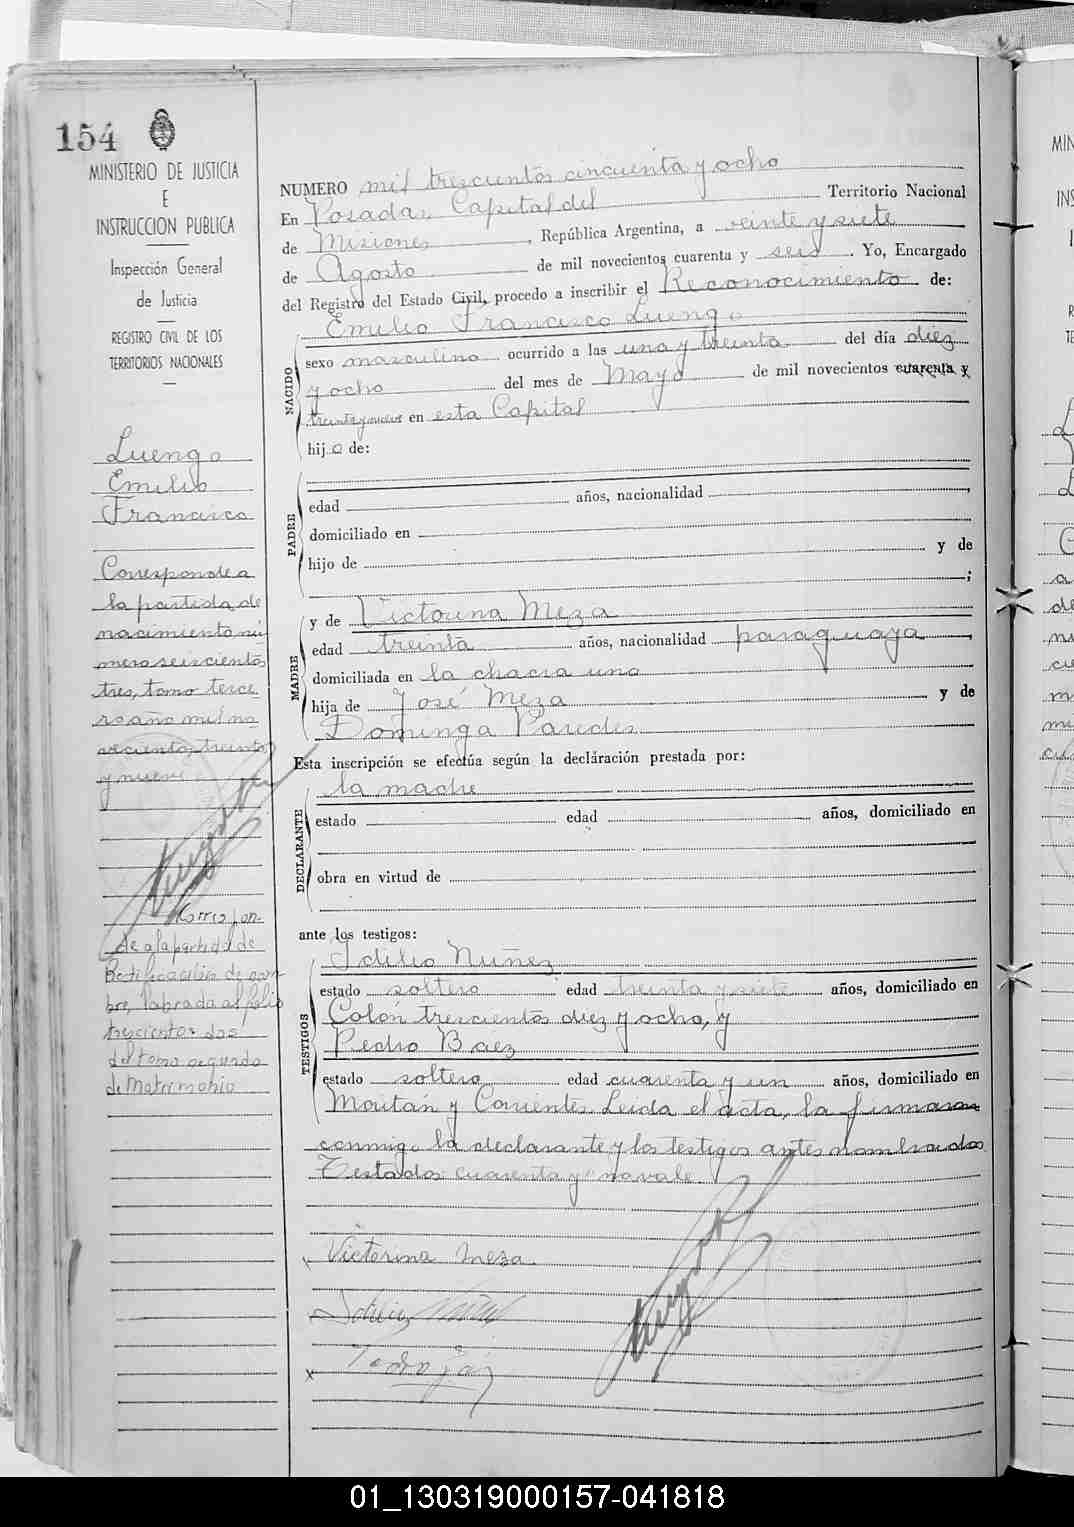 154
MINISTERIO DE JUSTICIA
E
INSTRUCCION PUBLICA
Inspección General
de Justicia
REGISTRO CIVIL DE LOS
TERRITORIOS NACIONALES
Luengo
Emilio
Francisco
Corresponde a
la partida de
nacimiento nú
mero seiscientos
tres, tomo terce
ro año mil no
vecientos treinta
y nueve
Correspon-
de a la partida de
Rectificación de nom-
bre, labrada al folio
trescientos dos
del tomo segundo
de Matrimonio
NUMERO mil trescientos cincuenta y ocho
En Posadas, Capital del Territorio Nacional
de Misiones, República Argentina, a veinte y siete
de Agosto de mil novecientos cuarenta y seis. Yo, Encargado
del Registro del Estado Civil, procedo a inscribir el Reconocimiento de:
Emilio Francisco Luengo
NACIDO
sexo masculino ocurrido a las una y treinta del día diez
y ocho del mes de Mayo de mil novecientos cuarenta y
treinta y nueve en esta Capital
hijo de:
PADRE
edad años, nacionalidad ,
domiciliado en
hijo de y de
;
MADRE
y de Victorina Meza
edad treinta años, nacionalidad paraguaya,
domiciliada en la chacra uno
hija de José Meza y de
Dominga Paredes
Esta inscripción se efectúa según la declaración prestada por:
la madre
DECLARANTE
estado edad años, domiciliado en
obra en virtud de
ante los testigos:
TESTIGOS
Idilio Nuñez
estado soltero edad treinta y siete años, domiciliado en
Colón trescientos diez y ocho, y
Pedro Baez
estado soltero edad cuarenta y un años, domiciliado en
Moritán y Corrientes. Leida el acta, la firmaron
conmigo la declarante y los testigos antes nombrados
Testados: cuarenta y: no vale.
Victorina Meza
01_130319000157-041818